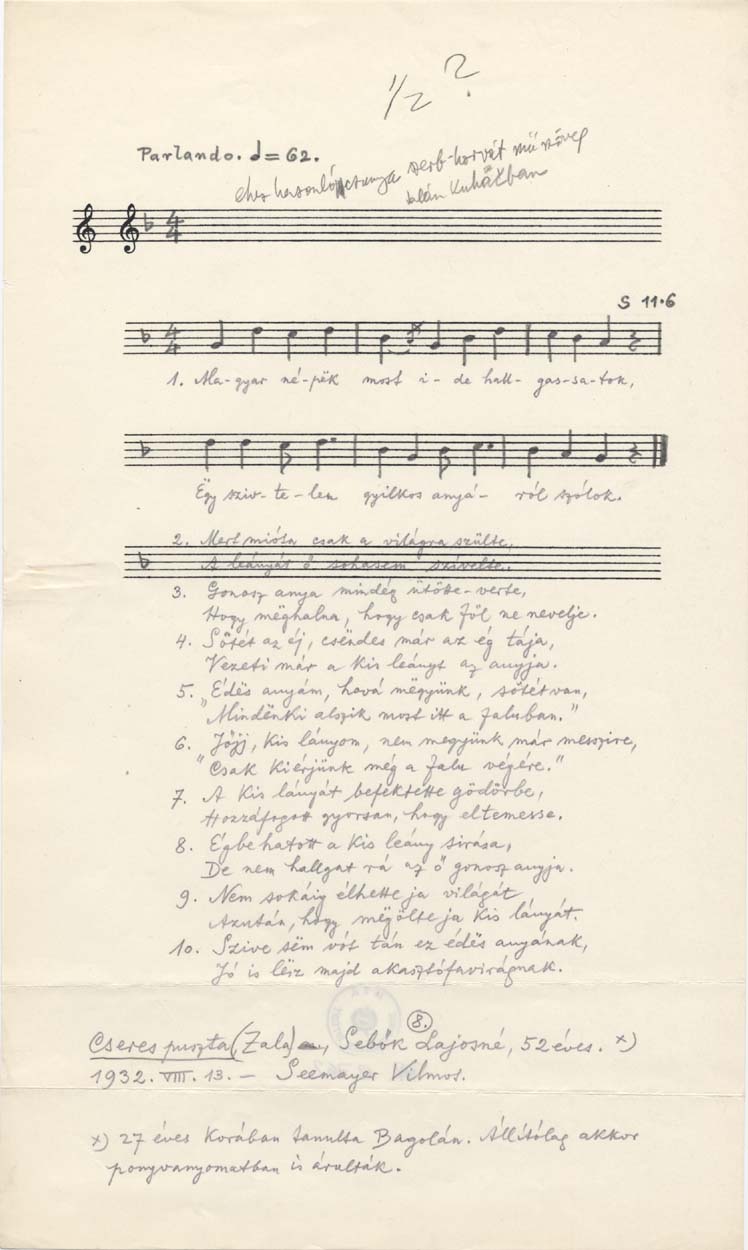 1/2 ?
Parlando. ♩= 62.
ehez hasonló csunya szerb-horvát műszöveg
talán Kuhačban
4
4
S 11.6
4
4
1. Ma-gyar né-pëk most i-de hall-gas-sa-tok,
Ëgy sziv-te-len gyilkos anyá-ról szólok.
2. Mert mióta csak a világra szülte,
A leányát ő sohasem szívelte.
3. Gonosz anya mindég ütötte-verte,
Hogy mëghalna, hogy csak föl ne nevelje.
4. Sötét az éj, csëndes már az ég tája,
Vezeti már a kis leányt az anyja.
5. „Édës anyám, hová mëgyünk, sötét van,
„Mindënki alszik most itt a faluban."
6. „Jőjj, kis lányom, nem megyünk már messzire,
„Csak kiérjünk még a falu végére."
7. A kis lányát befektette gödörbe,
Hozzáfogott gyorsan, hogy eltemesse.
8. Égbe hatott a kis leány sirása,
De nem hallgat rá az ő gonosz anyja.
9. Nem sokáig élhette ja világát
Azután, hogy mëgölte ja kis lányát.
10. Szive sëm vót tán ez édës anyának,
Jó is lëisz majd akasztófavirágnak.
8.
Cseres puszta (Zala), Sebők Lajosné, 52 éves. x)
1932. VIII. 13. — Seemayer Vilmos.
x) 27 éves korában tanulta Bagolán. Állítólag akkor
ponyvanyomatban is árulták.